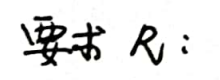 要求 R: